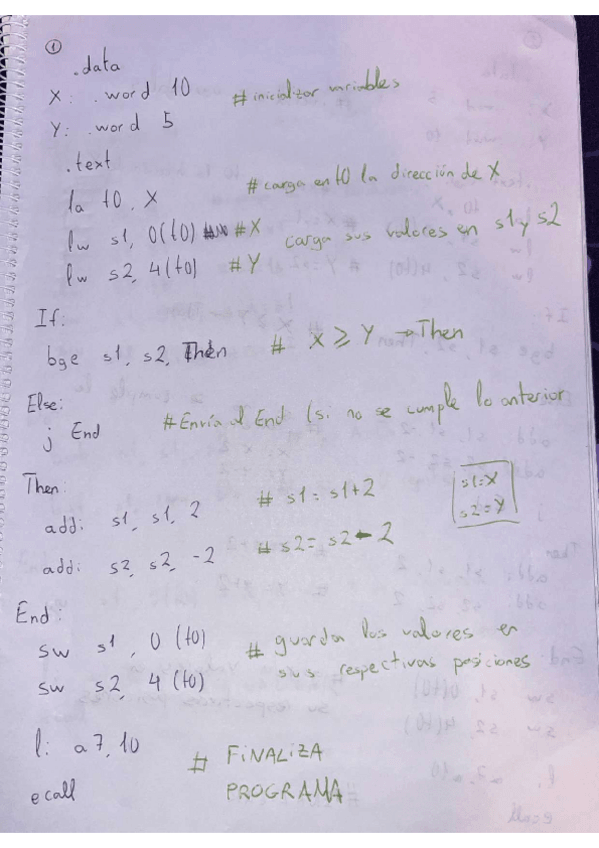 1
.data
X: .word 10 # inicializar variables
Y: .word 5
.text
la t0, X # carga en t0 la dirección de X
lw s1, 0(t0) # #X carga sus valores en s1 y s2
lw s2, 4(t0) #Y
If:
bge s1, s2, Then # X ≥ Y → Then
Else:
j End #Envía al End (si no se cumple lo anterior
Then:
addi s1, s1, 2 # s1 = s1+2
s1=X
addi s2, s2, -2 # s2 = s2 - 2
s2=Y
End:
sw s1, 0 (t0) # guardan los valores en
sw s2, 4 (t0) sus respectivas posiciones
li a7, 10 # FINALIZA
ecall PROGRAMA